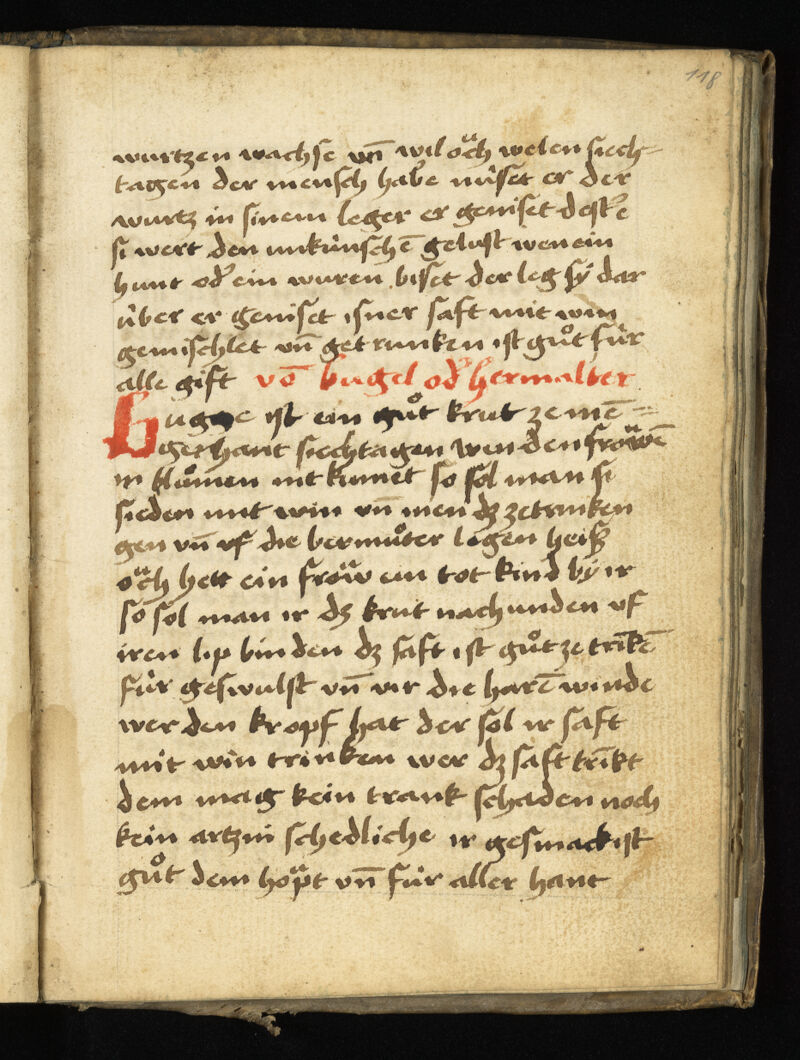 118
wurtzen wachse vn̄ wil oͧch welen siech-
tagen der mensch habe nüset er der
wurtz in sinem leger er geniset deste
si wert den unkünschē gelust wen ein
hunt od' ein wuren bisset der leg sÿ dar
über er geniset isner saft mit win
gemischlet vn̄ getrunken ist guͦt für
alle gift vō bugel od' hermalter
Bugge ist ein guͦt krut ze mē=
gerhant siechtagen wen den froͧwē
ir bluͦmen nit kumet so sol man si
sieden mit win vn̄ inen dz zetrinken
gen vn̄ vf die bermuͦter legen heiß
oͧch hett ein froͧw ein tot kind bÿ ir
so sol man ir dz krut nach unden vf
iren lip binden dz saft ist guͦt ze trīkē
für geswulst vn̄ vir die harē winde
wer den kropf hat der sol ir saft
mit win trinken wer dz saft trīkt
dem mag kein trank schaden noch
kein artzni schedliche ir gesmack ist
guͦt dem hoͧpt vn̄ für aller hant